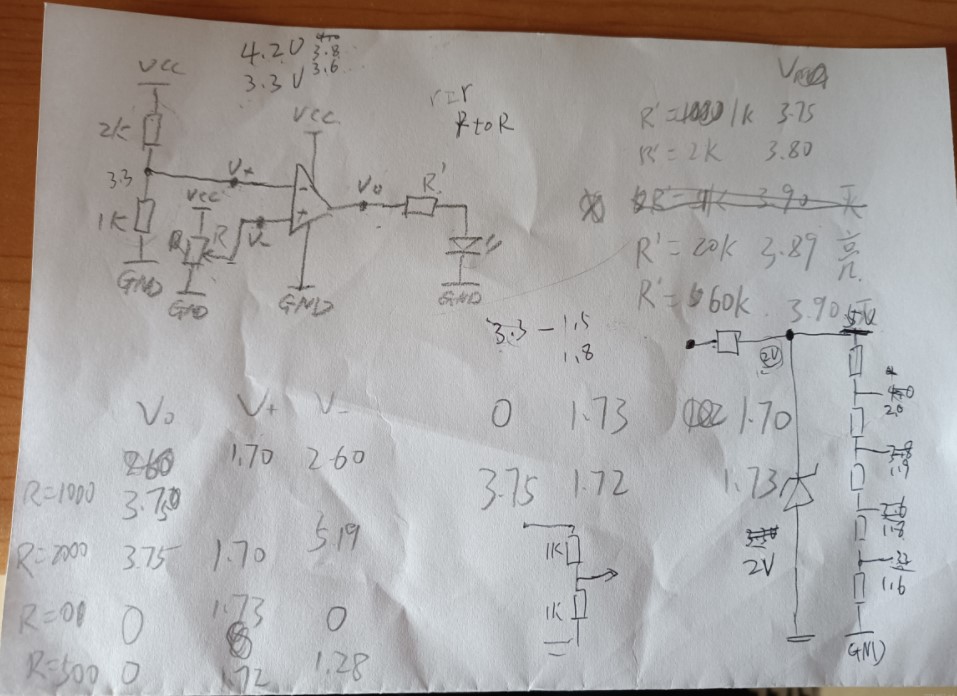 4.2V 3.8
3.3V 3.6
VCC
2K
3.3
1K
GND
VCC
R
GND
V+
V-
VCC
-
+
GND
Vo
R'
GND
r=r
R to R
R'= 1K 3.75
R'= 2K 3.80
R'= 20K 3.89 亮
R'= 60K 3.90 灭
3.3 - 1.5
1.8
2V
5V
2.0
1.9
1.8
1.6
GND
2V
Vo V+ V-
2.60 1.70 2.60
R=1000 3.75
R=2000 3.75 1.70 5.19
R=00 0 1.73 0
R=500 0 1.72 1.28
0 1.73 1.70
3.75 1.72 1.73
1K
1K